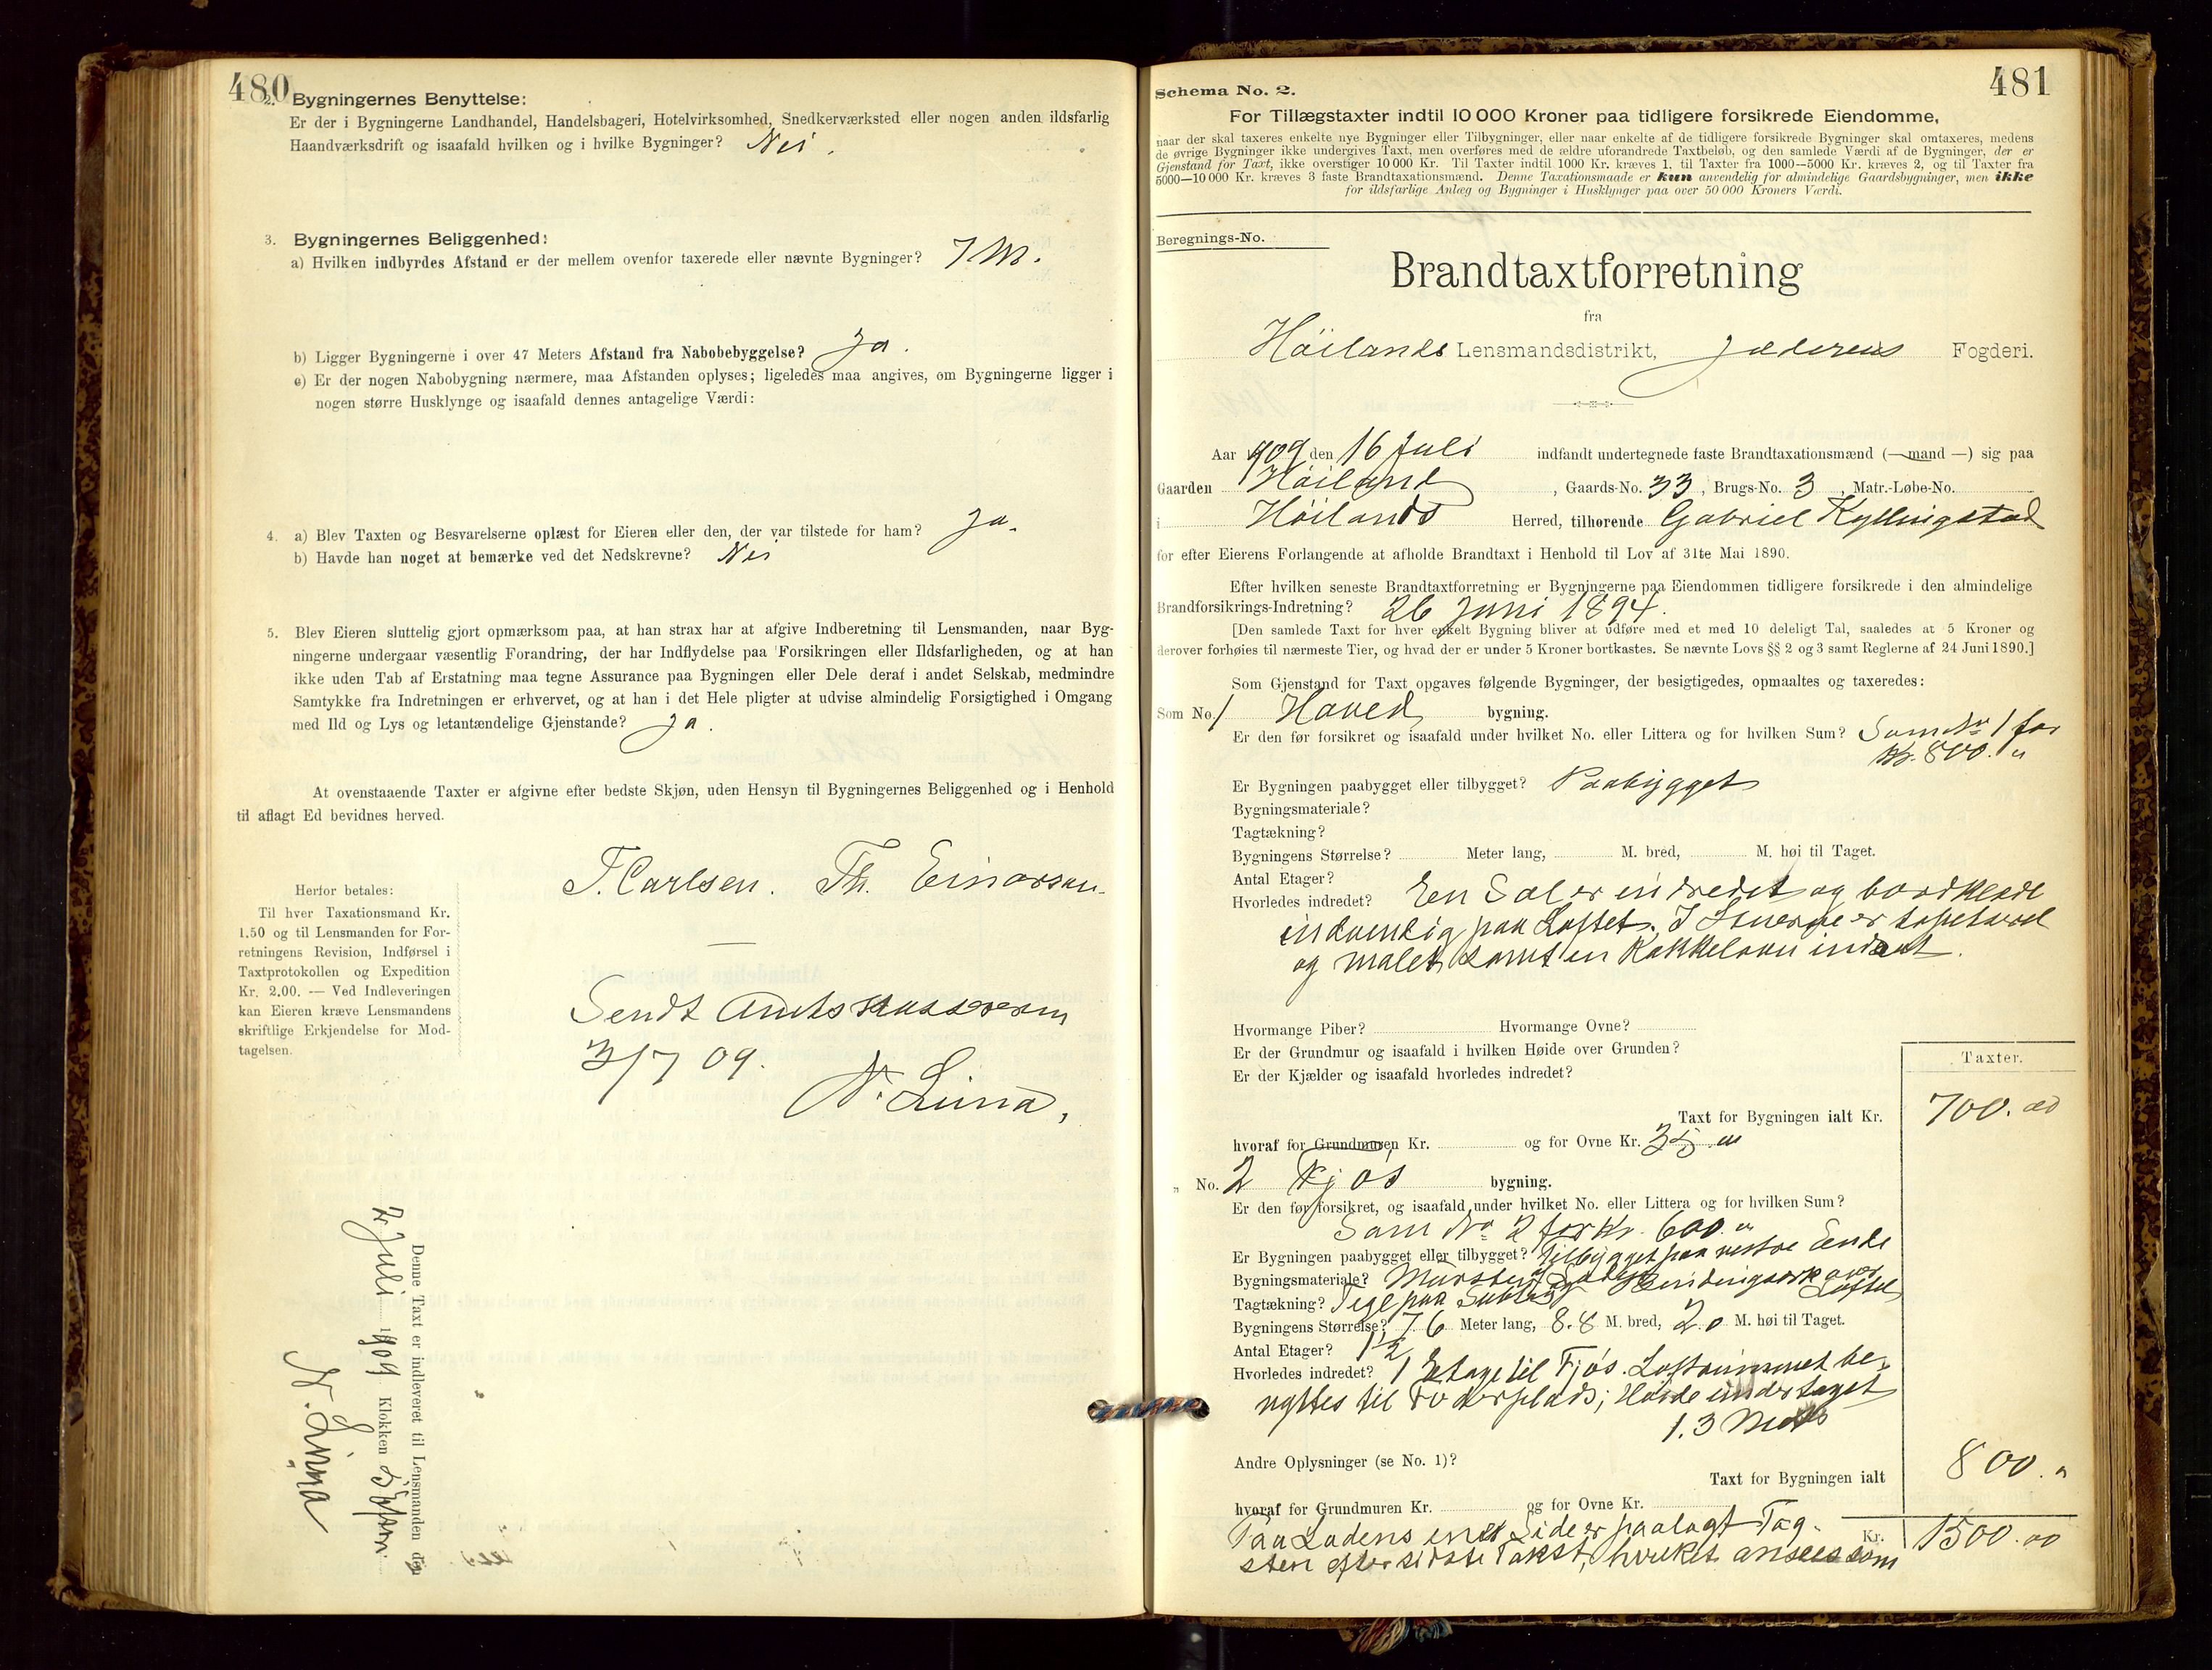 480
2. Bygningernes Benyttelse:
Er der i Bygningerne Landhandel, Handelsbageri, Hotelvirksomhed, Snedkerværksted eller nogen anden ildsfarlig
Haandværksdrift og isaafald hvilken og i hvilke Bygninger? Nei.
3. Bygningernes Beliggenhed:
a) Hvilken indbyrdes Afstand er der mellem ovenfor taxerede eller nævnte Bygninger? 7 M.
b) Ligger Bygningerne i over 47 Meters Afstand fra Nabobebyggelse? Ja.
c) Er der nogen Nabobygning nærmere, maa Afstanden oplyses; ligeledes maa angives, om Bygningerne ligger i
nogen større Husklynge og isaafald dennes antagelige Værdi:
4. a) Blev Taxten og Besvarelserne oplæst for Eieren eller den, der var tilstede for ham? Ja.
b) Havde han noget at bemærke ved det Nedskrevne? Nei
5. Blev Eieren sluttelig gjort opmærksom paa, at han strax har at afgive Indberetning til Lensmanden, naar Byg-
ningerne undergaar væsentlig Forandring, der har Indflydelse paa Forsikringen eller Ildsfarligheden, og at han
ikke uden Tab af Erstatning maa tegne Assurance paa Bygningen eller Dele deraf i andet Selskab, medmindre
Samtykke fra Indretningen er erhvervet, og at han i det Hele pligter at udvise almindelig Forsigtighed i Omgang
med Ild og Lys og letantændelige Gjenstande? Ja.
At ovenstaaende Taxter er afgivne efter bedste Skjøn, uden Hensyn til Bygningernes Beliggenhed og i Henhold
til aflagt Ed bevidnes herved.
T. Carlsen. Th. Einarsen.
Herfor betales:
Til hver Taxationsmand Kr.
1.50 og til Lensmanden for For-
retningens Revision, Indførsel i
Taxtprotokollen og Expedition
Kr. 2.00. — Ved Indleveringen
kan Eieren kræve Lensmandens
skriftlige Erkjendelse for Mod-
tagelsen.
Sendt Amtskassereren
/7 09.
N. Lima,
Denne Taxt er indleveret til Lensmanden den
Juli 1909 Klokken
N. Lima
481
Schema No. 2.
For Tillægstaxter indtil 10 000 Kroner paa tidligere forsikrede Eiendomme,
naar der skal taxeres enkelte nye Bygninger eller Tilbygninger, eller naar enkelte af de tidligere forsikrede Bygninger skal omtaxeres, medens
de øvrige Bygninger ikke undergives Taxt, men overføres med de ældre uforandrede Taxtbeløb, og den samlede Værdi af de Bygninger, der er
Gjenstand for Taxt, ikke overstiger 10 000 Kr. Til Taxter indtil 1000 Kr. kræves 1, til Taxter fra 1000—5000 Kr. kræves 2, og til Taxter fra
5000—10 000 Kr. kræves 3 faste Brandtaxationsmænd. Denne Taxationsmaade er kun anvendelig for almindelige Gaardsbygninger, men ikke
for ildsfarlige Anlæg og Bygninger i Husklynger paa over 50 000 Kroners Værdi.
Beregnings-No.
Brandtaxtforretning
fra
Höilands Lensmandsdistrikt, Jæderens Fogderi.
Aar 1909 den 16 Juli indfandt undertegnede faste Brandtaxationsmænd (—mand —) sig paa
Gaarden Höiland, Gaards-No. 33, Brugs-No. 3, Matr.-Løbe-No.
i Höilands Herred, tilhørende Gabriel Kyllingstad
for efter Eierens Forlangende at afholde Brandtaxt i Henhold til Lov af 31te Mai 1890.
Efter hvilken seneste Brandtaxtforretning er Bygningerne paa Eiendommen tidligere forsikrede i den almindelige
Brandforsikrings-Indretning? 26 Juni 1894.
[Den samlede Taxt for hver enkelt Bygning bliver at udføre med et med 10 deleligt Tal, saaledes at 5 Kroner og
derover forhøies til nærmeste Tier, og hvad der er under 5 Kroner bortkastes. Se nævnte Lovs §§ 2 og 3 samt Reglerne af 24 Juni 1890.]
Som Gjenstand for Taxt opgaves følgende Bygninger, der besigtigedes, opmaaltes og taxeredes:
Som No. 1 Hoved bygning.
Er den før forsikret og isaafald under hvilket No. eller Littera og for hvilken Sum? Som No 1 for
Kr. 800. "
Er Bygningen paabygget eller tilbygget? Paabygget
Bygningsmateriale?
Tagtækning?
Bygningens Størrelse? Meter lang, M. bred, M. høi til Taget.
Antal Etager?
Hvorledes indredet? En Sal er indredet og bordklædt
indvendig paa Loftet. I Stuerne er tapetseret
og malet samt en Kakkelovn indsat.
Hvormange Piber? Hvormange Ovne?
Er der Grundmur og isaafald i hvilken Høide over Grunden?
Er der Kjælder og isaafald hvorledes indredet?
Taxter.
Taxt for Bygningen ialt Kr. 700. 00
hvoraf for Grundmuren Kr. og for Ovne Kr. 35 "
" No. 2 Fjøs bygning.
Er den før forsikret, og isaafald under hvilket No. eller Littera og for hvilken Sum?
Som No 2 for Kr. 600. "
Er Bygningen paabygget eller tilbygget? Tilbygget paa vestre Ende
Bygningsmateriale? Mursten, Bindingsverk over
Tagtækning? Tegl paa Loftet
Bygningens Størrelse? 7.6 Meter lang, 8.8 M. bred, 2.0 M. høi til Taget.
Antal Etager? 1½
Hvorledes indredet? 1 Etage til Fjös. Loftrummet be-
nyttes til Foderplads; Höide under taget
1.3 Meter
Andre Oplysninger (se No. 1)?
Taxt for Bygningen ialt 800. "
hvoraf for Grundmuren Kr. og for Ovne Kr.
Paa Ladens ene Side er paalagt Tag- Kr. 1500.00
sten efter sidste Takst, hvilket ansees som